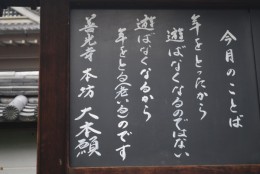 今月のことば
年をとったから
遊ばなくなるのではない
遊ばなくなるから
年をとる(老いる)のです
善光寺 本坊 大本願